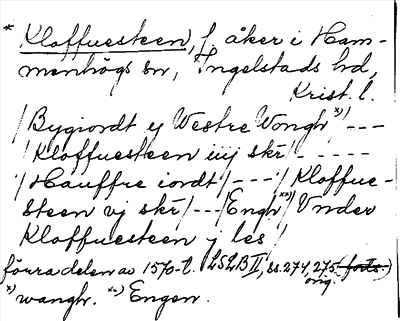 * Kloffuesteen, f. åker i Ham-
menhögs sn, Ingelstads hd,
Krist. l.
/Bygiordt y Westre Vongh x)/ ---
/Kloffuesteen iiij skr/ - - - - -
/Hauffre iordt/ --- / Kloffue-
steen vj skr/ --- /Engh xx)/ Vnder
Kloffuesteen j les/
förra delen av 1570-t. LSLB II, ss. 274, 275 (forts.)
orig.
x) wangh. xx) Engen.